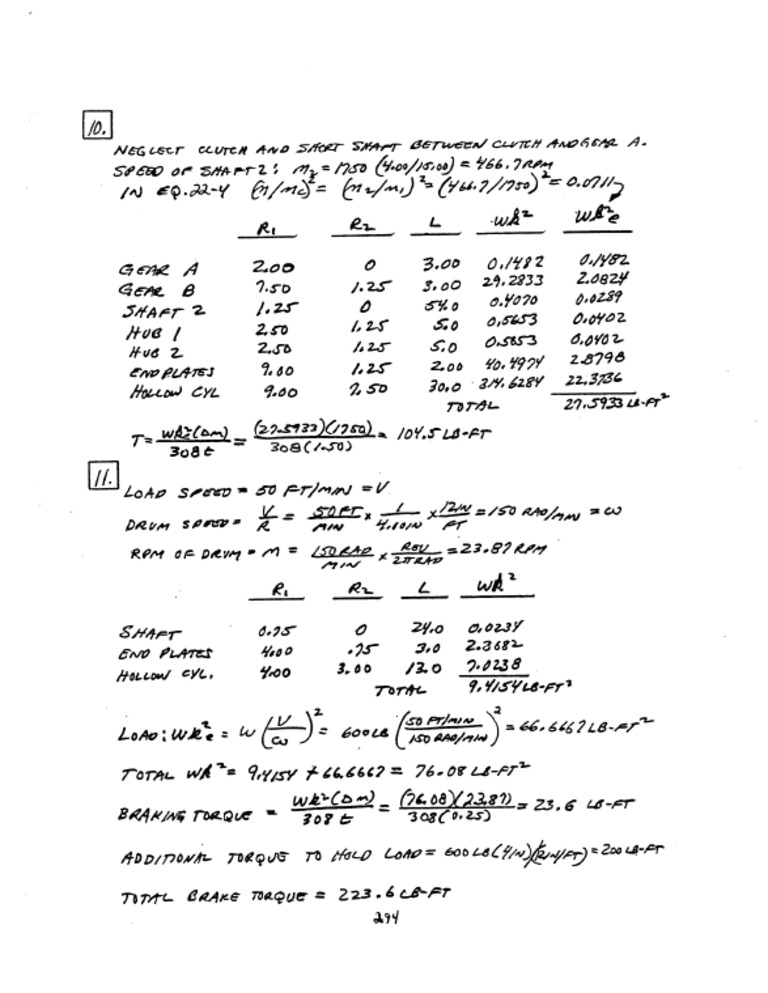 10.
NEGLECT CLUTCH AND SHORT SHAFT BETWEEN CLUTCH AND GEAR A.
SPEED OF SHAFT 2: n₂ = 1750 (4.00/15.00) = 466.7 RPM
IN EQ. 22-4 (n/nc)² = (n₂/n₁)² = (466.7/1750)² = 0.0711
R₁ R₂ L Wk² Wk²e
GEAR A 2.00 0 3.00 0.1482 0.1482
GEAR B 7.50 1.25 3.00 29.2833 2.0824
SHAFT 2 1.25 0 54.0 0.4070 0.0289
HUB 1 2.50 1.25 5.0 0.5653 0.0402
HUB 2 2.50 1.25 5.0 0.5653 0.0402
END PLATES 9.00 1.25 2.00 40.4974 2.8798
HOLLOW CYL 9.00 7.50 30.0 314.6284 22.3736
TOTAL 27.5933 LB-FT²
T = Wk²(Δn)/308t = (27.5933)(1750)/308(1.50) = 104.5 LB-FT
11.
LOAD SPEED = 50 FT/MIN = V
DRUM SPEED = V/R = 50FT/MIN × 1/4.00IN × 12IN/FT = 150 RAD/MIN = ω
RPM OF DRUM = n = 150 RAD/MIN × REV/2π RAD = 23.87 RPM
R₁ R₂ L Wk²
SHAFT 0.75 0 24.0 0.0234
END PLATES 4.00 .75 3.0 2.3682
HOLLOW CYL. 4.00 3.00 13.0 7.0238
TOTAL 9.4154 LB-FT²
LOAD: Wk²e = W (V/ω)² = 600LB (50 FT/MIN / 150 RAD/MIN)² = 66.6667 LB-FT²
TOTAL Wk² = 9.4154 + 66.6667 = 76.08 LB-FT²
BRAKING TORQUE = Wk²(Δn)/308 t = (76.08)(23.87)/308(0.25) = 23.6 LB-FT
ADDITIONAL TORQUE TO HOLD LOAD = 600 LB (4 IN)/(12IN/FT) = 200 LB-FT
TOTAL BRAKE TORQUE = 223.6 LB-FT
294